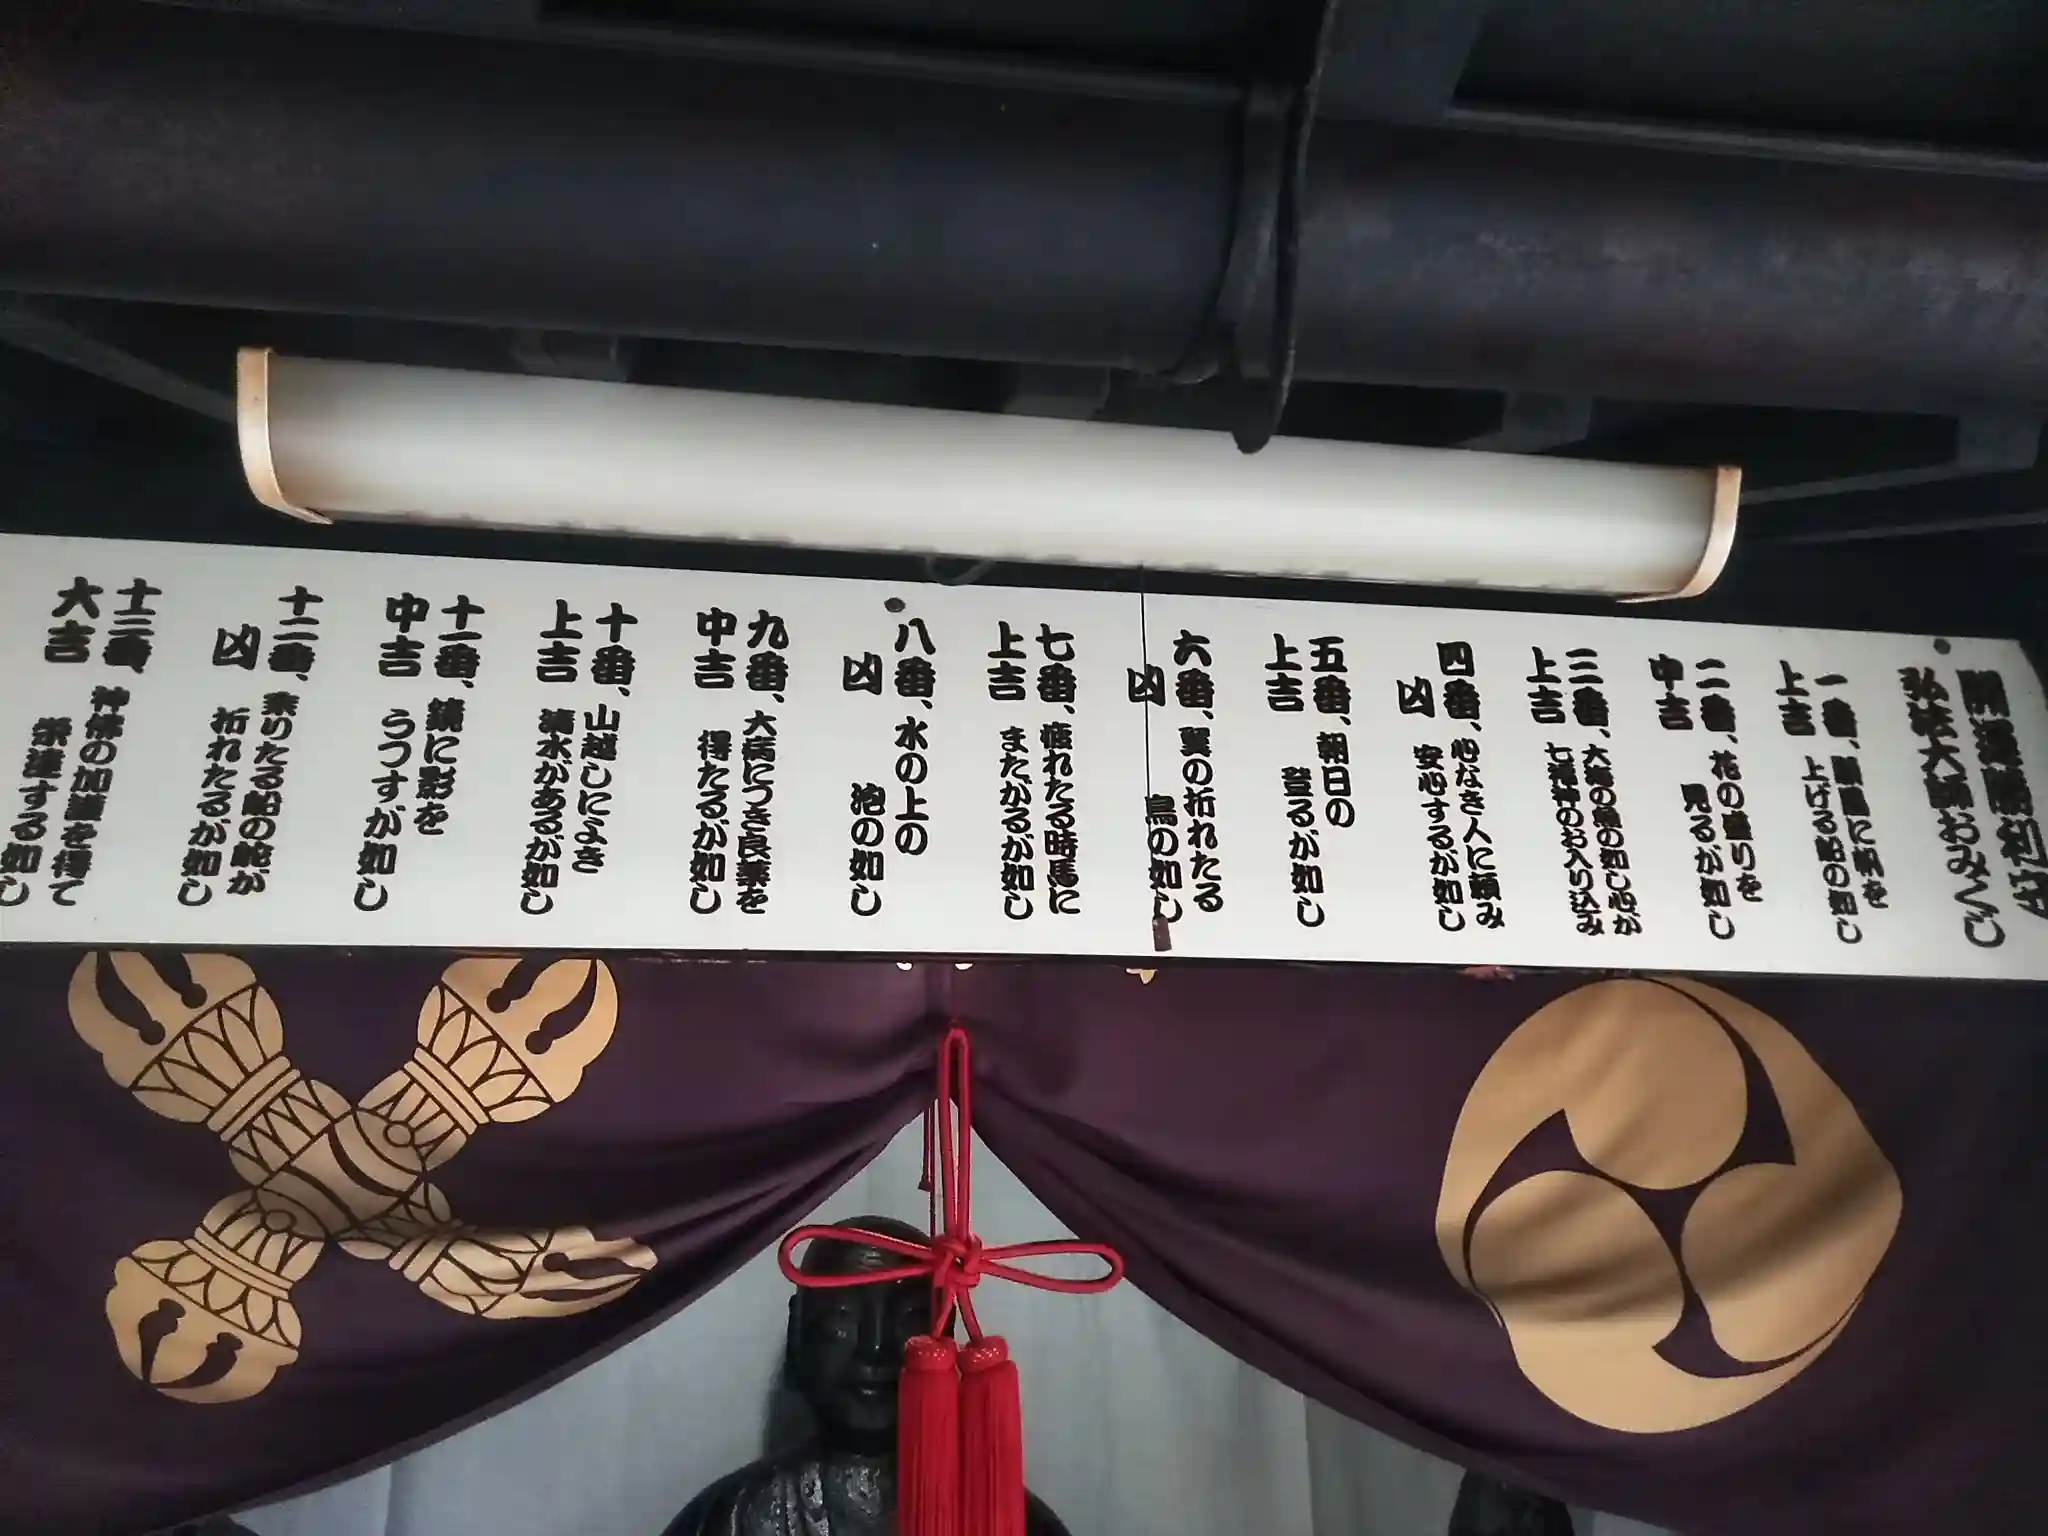 開運勝利生
弘法大師おみくじ
一番、順風に帆を
上吉 上げる船の如し
二番、花の盛りを
中吉 見るが如し
三番、大海の船の如し心が
上吉 七福神のお入り込み
四番、心なき人に頼み
凶 安心するが如し
五番、朝日の
上吉 登るが如し
六番、翼の折れたる
凶 鳥の如し
七番、疲れたる時馬に
上吉 またがるが如し
八番、水の上の
凶 泡の如し
九番、大病につき良薬を
中吉 得たるが如し
十番、山越しによき
上吉 清水があるが如し
十一番、鏡に影を
中吉 うつすが如し
十二番、乗りたる船の舵が
凶 折れたるが如し
十三番、神佛の加護を得て
大吉 栄達する如し